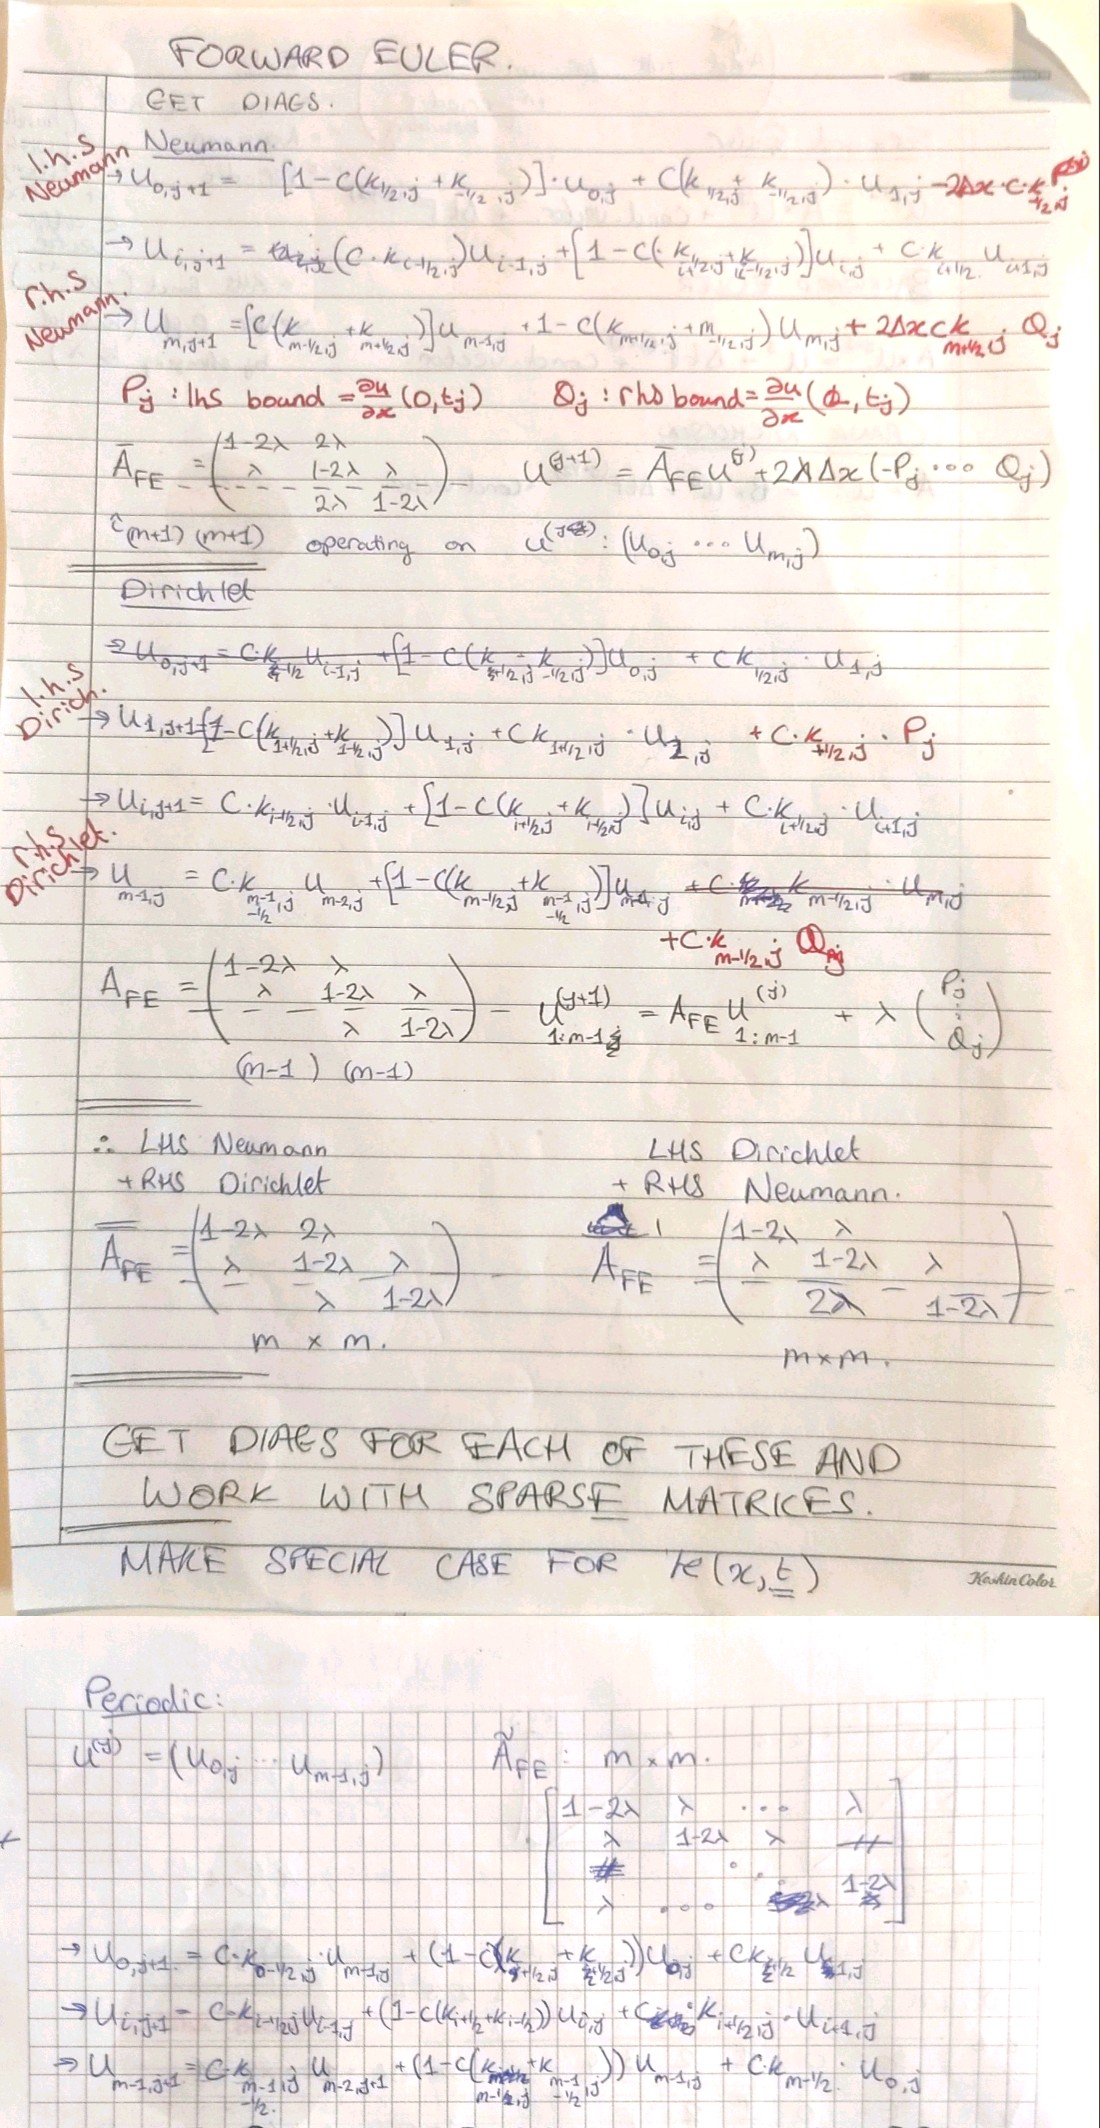 FORWARD EULER.
GET DIAGS.
Neumann.
l.h.s Neumann → U_{0,j+1} = [1-C(k_{1/2,j} + k_{-1/2,j})]·u_{0,j} + C(k_{1/2,j} + k_{-1/2,j})·U_{1,j} -2Δx·C·k_{-1/2,j} P_j
→ U_{i,j+1} = (C·k_{i-1/2,j})U_{i-1,j} + [1-C(k_{i+1/2,j}+k_{i-1/2,j})]u_{i,j} + C·k_{i+1/2} u_{i+1,j}
r.h.s Neumann. → U_{m,j+1} = [C(k_{m-1/2,j} + k_{m+1/2,j})]u_{m-1,j} + 1-C(k_{m+1/2,j} + m_{-1/2,j}) U_{m,j} + 2Δx C k_{m+1/2,j} Q_j
P_j : lhs bound = ∂u/∂x (0,t_j) Q_j : rhs bound = ∂u/∂x (, t_j)
Ā_{FE} = (1-2λ 2λ
λ 1-2λ λ
2λ 1-2λ) u^{(j+1)} = Ā_{FE} u^{(j)} + 2λΔx(-P_j ... Q_j)
(m+1) (m+1) operating on u^{(j)} : (U_{0,j} ... U_{m,j})
Dirichlet
→ U_{0,j+1} = C·k_{-1/2} U_{i-1,j} + [1-C(k_{+1/2,j} - k_{-1/2,j})]U_{0,j} + C k_{1/2,j} · U_{1,j}
l.h.s Dirich. → U_{1,j+1} [1-C(k_{1+1/2,j} + k_{1-1/2,j})] U_{1,j} + C k_{1+1/2,j} · U_{2,j} + C·k_{+1/2,j} · P_j
→ U_{i,j+1} = C·k_{i-1/2,j}·U_{i-1,j} + [1-C(k_{i+1/2,j} + k_{i-1/2,j})] u_{i,j} + C·k_{i+1/2,j} · U_{i+1,j}
r.h.s Dirichlet. → U_{m-1,j} = C·k_{m-1-1/2,j} U_{m-2,j} + [1-C(k_{m-1/2,j} + k_{m-1-1/2,j})]u_{m-1,j} + C· k_{m-1/2,j} · U_{m,j}
+C·k_{m-1/2,j} Q_j
A_{FE} = (1-2λ λ
λ 1-2λ λ
λ 1-2λ) u^{(j+1)}_{1:m-1} = A_{FE} u^{(j)}_{1:m-1} + λ (P_j ⋮ Q_j)
(m-1) (m-1)
∴ LHS Neumann LHS Dirichlet
+ RHS Dirichlet + RHS Neumann.
A_{FE} = (1-2λ 2λ
λ 1-2λ λ
λ 1-2λ) A_{FE} = (1-2λ λ
λ 1-2λ λ
2λ 1-2λ)
m x m. m x m.
GET DIAGS FOR EACH OF THESE AND
WORK WITH SPARSE MATRICES.
MAKE SPECIAL CASE FOR k(x,t)
KashinColor
Periodic:
u^{(j)} = (U_{0,j} ... U_{m-1,j}) Ã_{FE} : m x m.
1-2λ λ ... λ
λ 1-2λ λ
1-2λ
λ ... λ
→ U_{0,j+1} = C·k_{0-1/2,j}·U_{m-1,j} + (1-C(k_{+1/2,j} + k_{-1/2,j}))U_{0,j} + C k_{+1/2} U_{1,j}
→ U_{i,j+1} = C·k_{i-1/2,j} U_{i-1,j} + (1-C(k_{i+1/2} + k_{i-1/2})) U_{i,j} + C·k_{i+1/2,j}·U_{i+1,j}
→ U_{m-1,j+1} = C·k_{m-1-1/2,j} U_{m-2,j+1} + (1-C(k_{m-1/2,j} + k_{m-1-1/2,j})) U_{m-1,j} + C·k_{m-1/2} · U_{0,j}